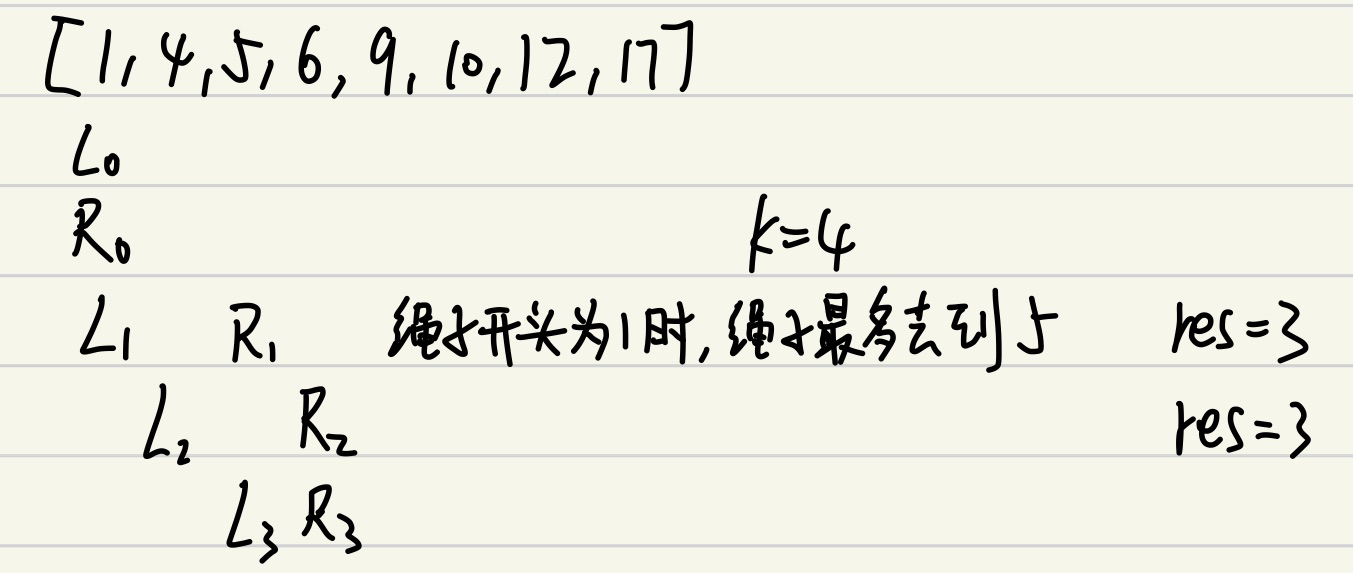 [1, 4, 5, 6, 9, 10, 12, 17]
L₀
R₀ k=4
L₁ R₁ 绳子开头为1时, 绳子最多去到5 res=3
L₂ R₂ res=3
L₃ R₃